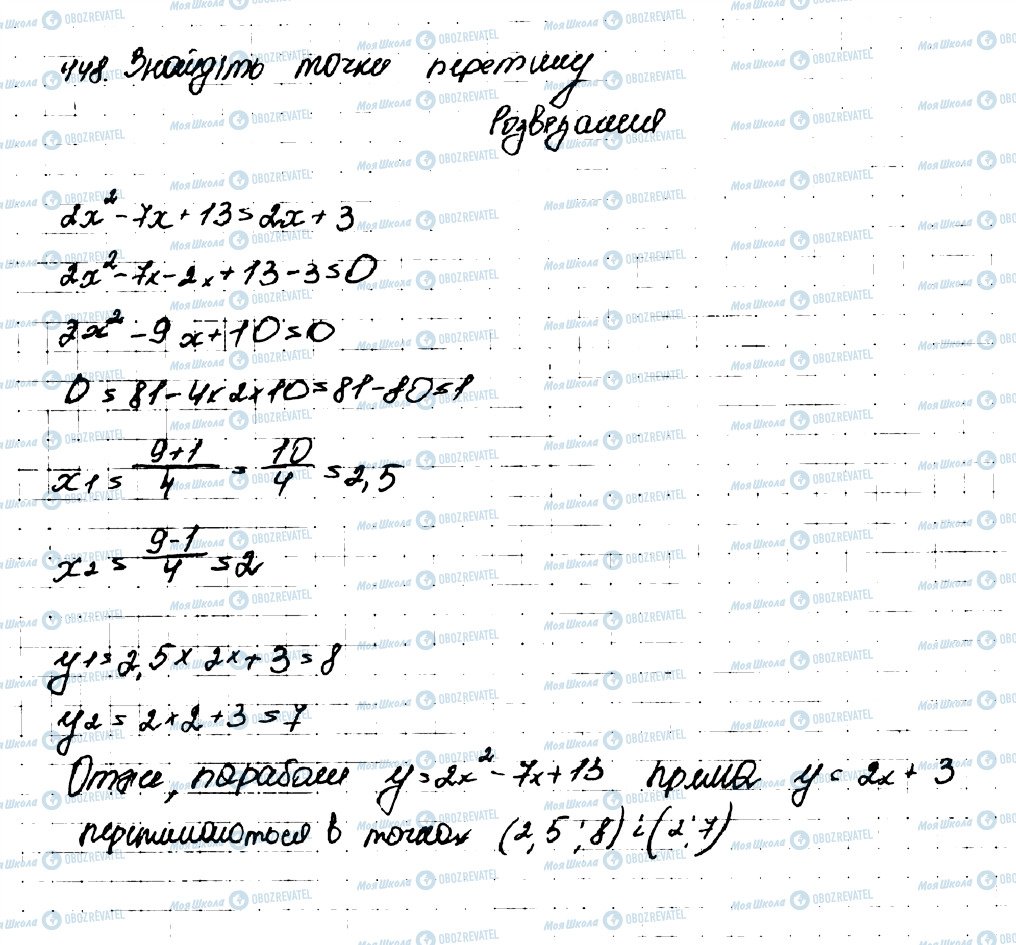 448. Знайдіть точки перетину
Розв'язання
2x² - 7x + 13 = 2x + 3
2x² - 7x - 2x + 13 - 3 = 0
2x² - 9x + 10 = 0
D = 81 - 4×2×10 = 81 - 80 = 1
x1 = 9+1/4 = 10/4 = 2,5
x2 = 9-1/4 = 2
y1 = 2,5 × 2x + 3 = 8
y2 = 2×2 + 3 = 7
Отже, параболи y = 2x² - 7x + 13 пряма y = 2x + 3
перетинаються в точках (2,5 ; 8) і (2; 7)